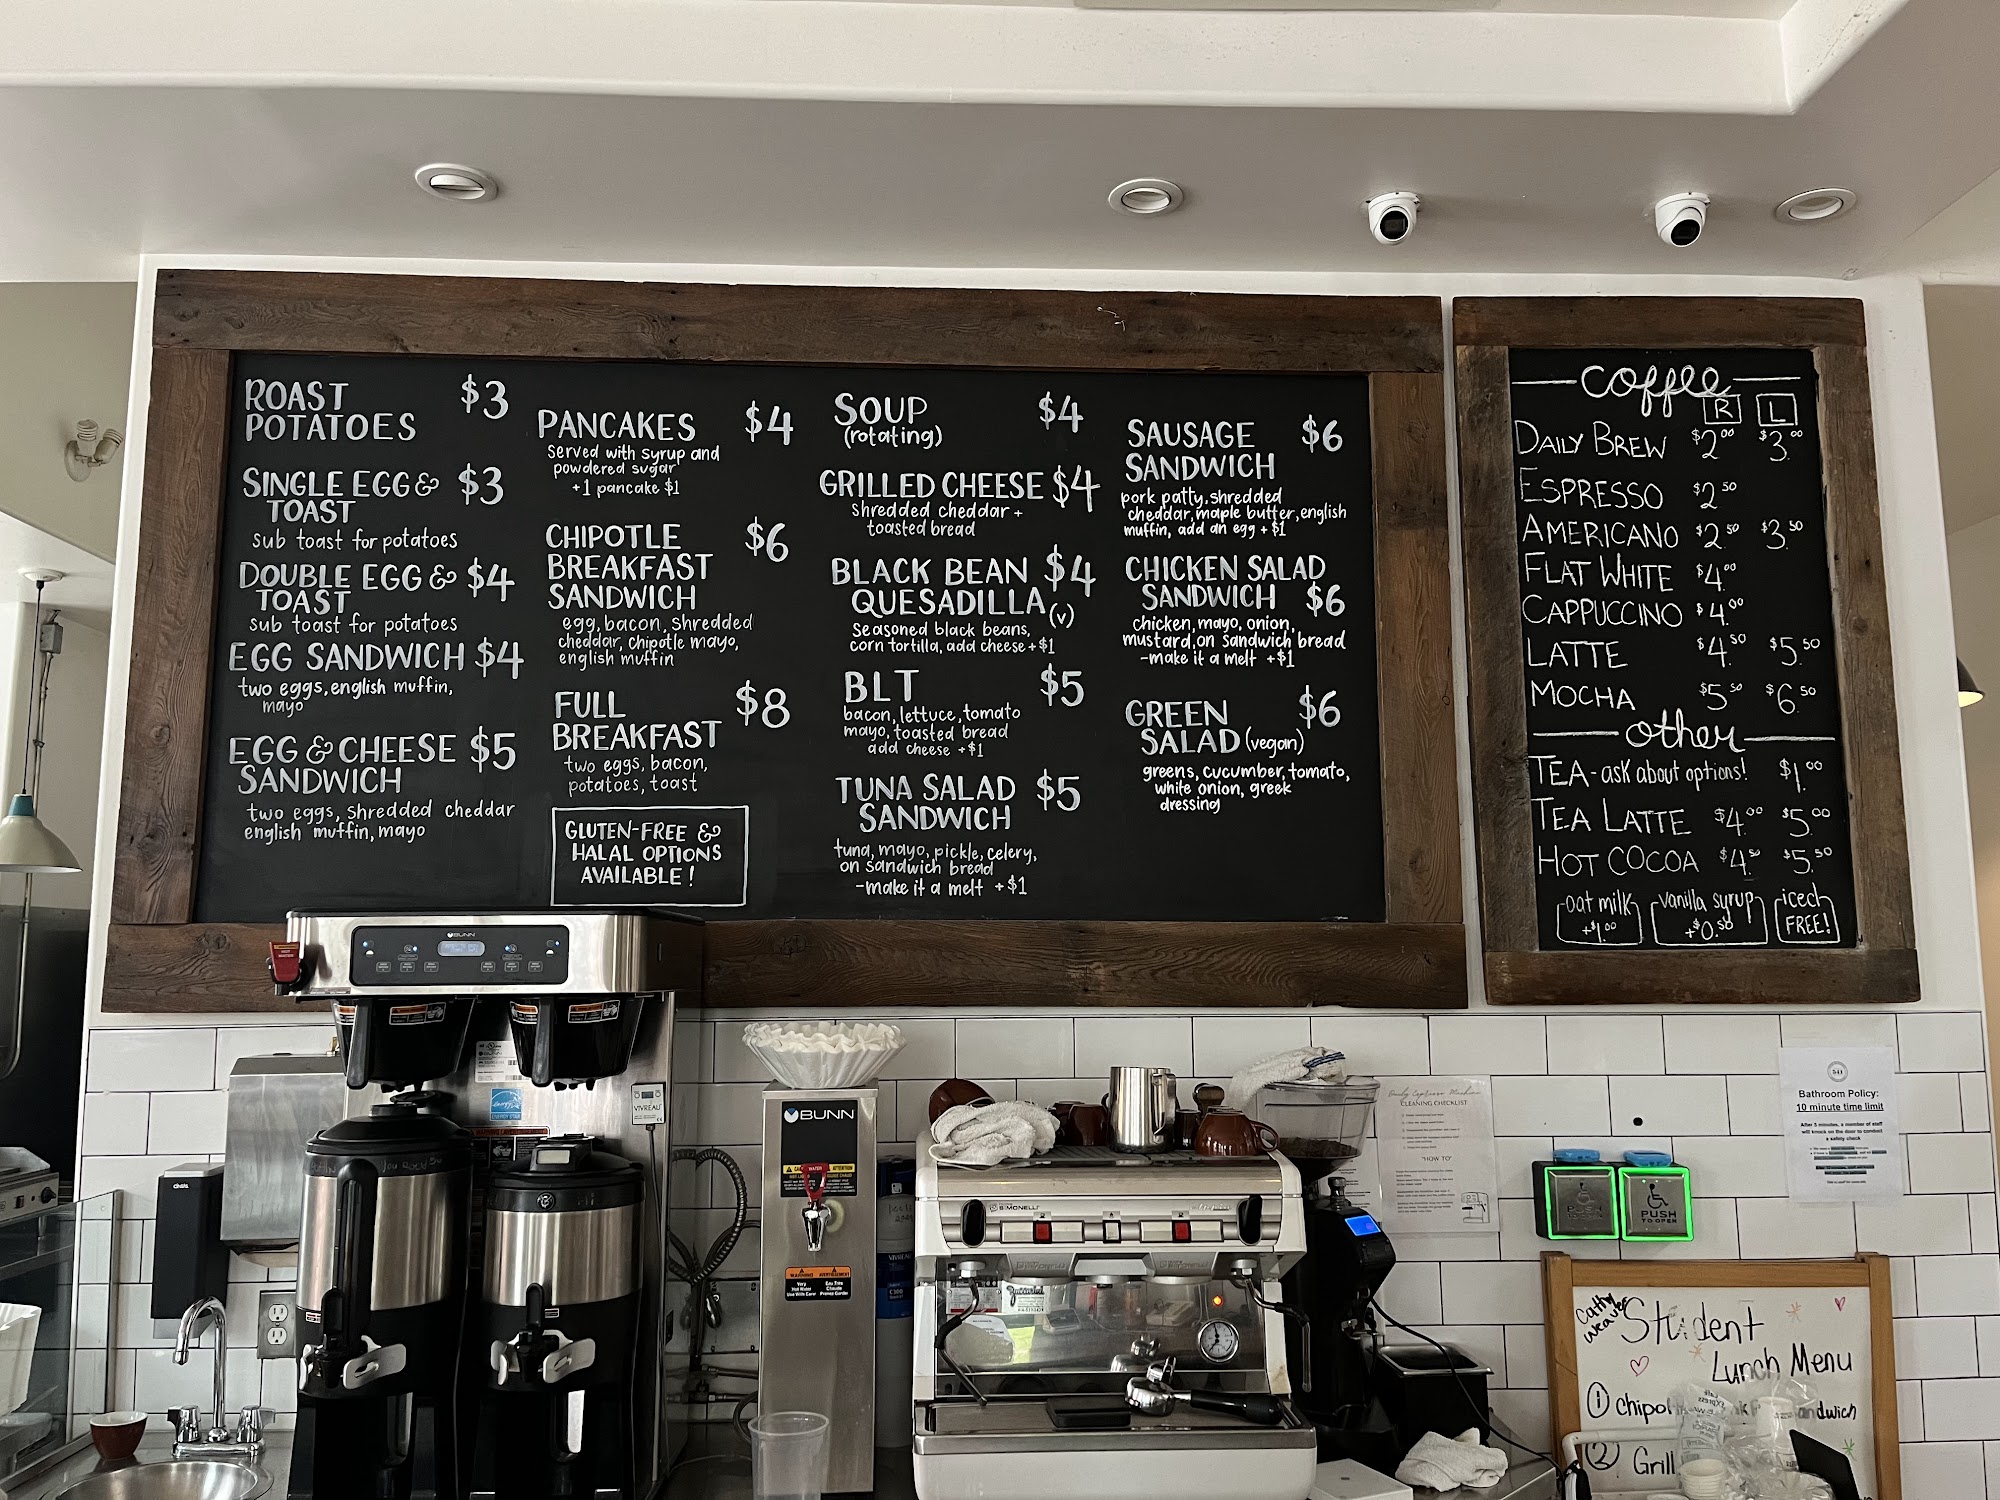 ROAST $3
POTATOES
SINGLE EGG & $3
TOAST
sub toast for potatoes
DOUBLE EGG & $4
TOAST
sub toast for potatoes
EGG SANDWICH $4
two eggs, english muffin,
mayo
EGG & CHEESE $5
SANDWICH
two eggs, shredded cheddar
english muffin, mayo
PANCAKES $4
Served with syrup and
powdered sugar
+1 pancake $1
CHIPOTLE $6
BREAKFAST
SANDWICH
egg, bacon, shredded
cheddar, chipotle mayo,
english muffin
FULL $8
BREAKFAST
two eggs, bacon,
potatoes, toast
GLUTEN-FREE &
HALAL OPTIONS
AVAILABLE!
SOUP $4
(rotating)
GRILLED CHEESE $4
Shredded cheddar +
toasted bread
BLACK BEAN $4
QUESADILLA (v)
Seasoned black beans,
corn tortilla, add cheese +$1
BLT $5
bacon, lettuce, tomato
mayo, toasted bread
add cheese +$1
TUNA SALAD $5
SANDWICH
tuna, mayo, pickle, celery,
on sandwich bread
-make it a melt +$1
SAUSAGE $6
SANDWICH
pork patty, shredded
cheddar, maple butter, english
muffin, add an egg +$1
CHICKEN SALAD
SANDWICH $6
chicken, mayo, onion,
mustard, on sandwich bread
-make it a melt +$1
GREEN $6
SALAD (vegan)
greens, cucumber, tomato,
white onion, greek
dressing
coffee
R L
DAILY BREW $2.00 $3.00
ESPRESSO $2.50
AMERICANO $2.50 $3.50
FLAT WHITE $4.00
CAPPUCCINO $4.00
LATTE $4.50 $5.50
MOCHA $5.50 $6.50
other
TEA - ask about options! $1.00
TEA LATTE $4.00 $5.00
HOT COCOA $4.50 $5.50
oat milk +$1.00
vanilla syrup +$0.50
iced FREE!
BUNN
BUNN
VIVREAU
WATER
ATTENTION
WARNING AVERTISSEMENT
SIMONELLI
CLEANING CHECKLIST
"HOW TO"
541
Bathroom Policy:
10 minute time limit
After 5 minutes, a member of staff
will knock on the door to conduct
a safety check
PUSH
TO OPEN
PUSH
TO OPEN
Cathy
Weaver
Student
Lunch Menu
① chipo andwich
② Grill